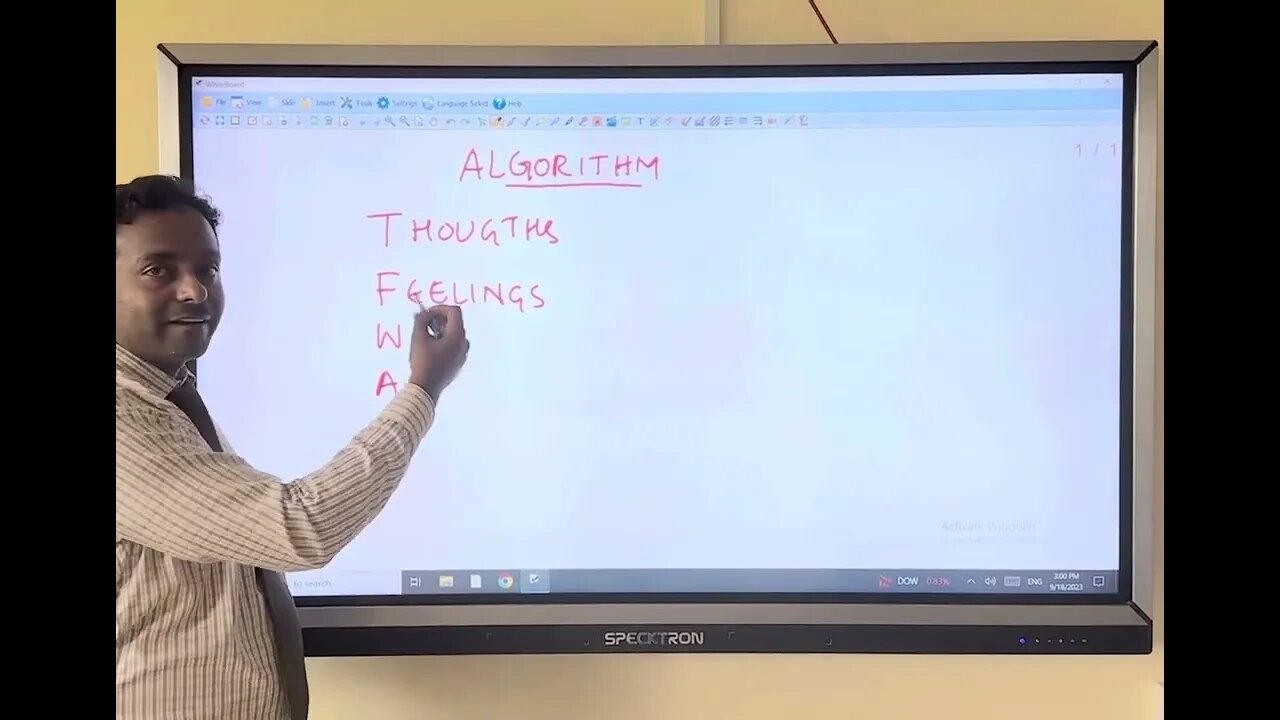 WhiteBoard
File View Slide Insert Tools Settings Language Select Help
1 / 1
ALGORITHM
THOUGTHS
FEELINGS
W
A
Activate Windows
to search
DOW 0.83% ENG 3:00 PM
9/18/2023
SPECKTRON